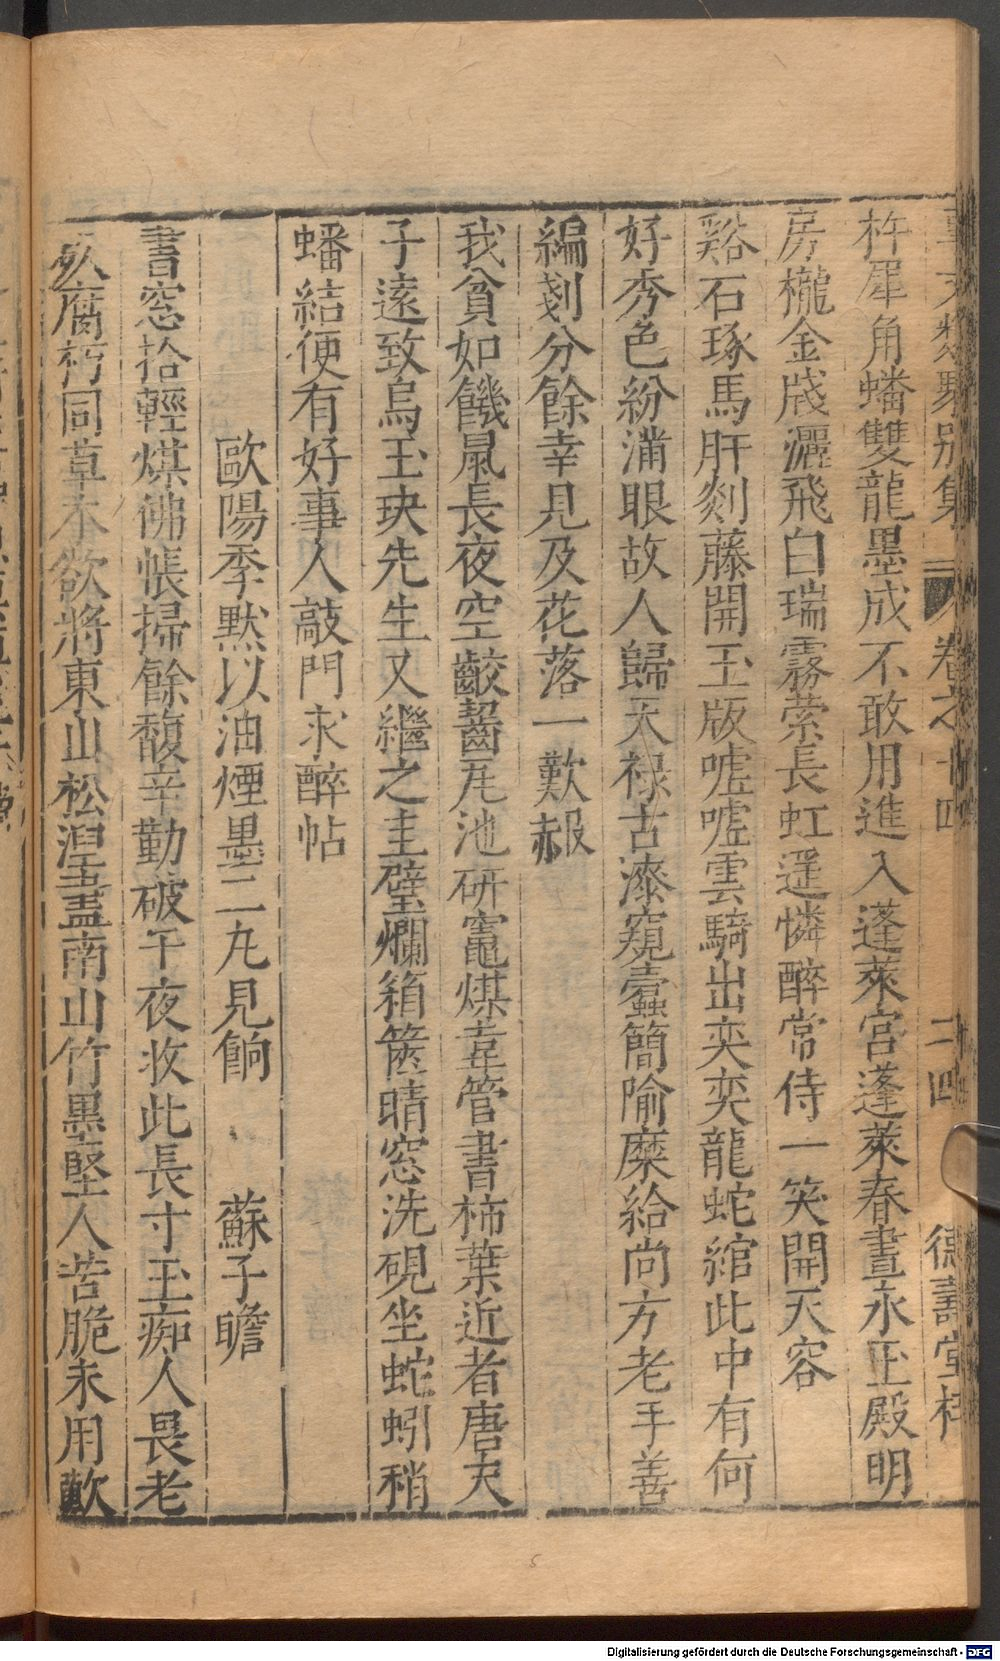 事文類聚別集 卷之十四 二四 德壽堂梓
杵犀角蟠雙龍墨成不敢用進入蓬萊宮蓬萊春晝永玉殿明
房櫳金牋灑飛白瑞霧縈長虹遥憐醉常侍一笑開天容
谿石琢馬肝剡藤開玉版噓噓雲霧出奕奕龍蛇綰此中有何
好秀色紛滿眼故人歸天祿古漆窺蠹簡隃糜給尚方老手善
編剗分餘幸見及花落一歎赧
我貧如饑鼠長夜空齩齧瓦池研竈煤葦管書柿葉近者唐夫
子遠致烏玉玦先生又繼之圭璧爛箱篋晴窓洗硯坐蛇蚓稍
蟠結便有好事人敲門求醉帖
歐陽季默以油煙墨二丸見餉 蘇子瞻
書窓拾輕煤佛帳掃餘馥辛勤破千夜收此長寸玉痴人畏老
死腐朽同草木欲將東山松涅盡南山竹墨堅人苦脆未用歎
Digitalisierung gefördert durch die Deutsche Forschungsgemeinschaft - DFG